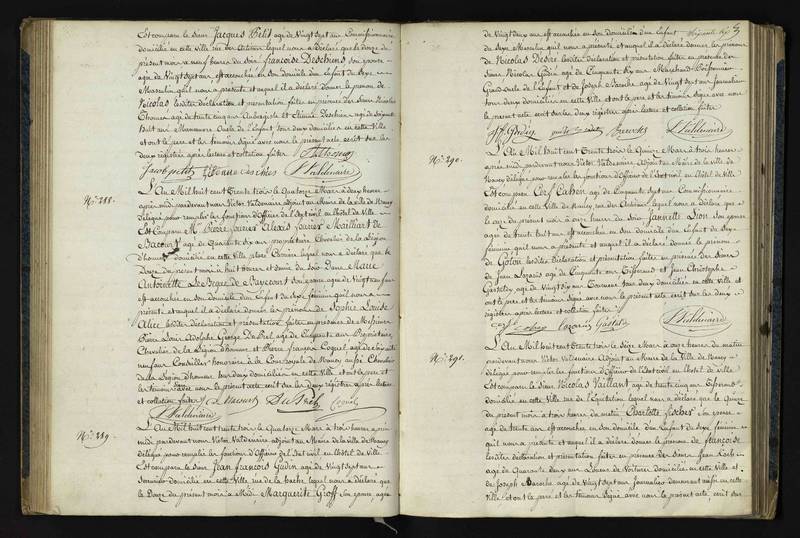 Est comparu le Sieur Jacques Petit agé de Vingt Sept ans Commissionnaire
domicilié en cette Ville rue des Artisans lequel nous a déclaré que le douze du
présent mois à neuf heures du soir françoise Deschiens son épouse
agée de Vingt sept ans est accouchée en son domicile d'un Enfant du Sexe
Masculin qu'il nous a présenté et auquel il a déclaré donner le prénom de
Nicolas lesdites déclaration et présentation faites en présence des Sieurs Nicolas
agé de trente cinq ans Aubergiste et Etienne Deschiens agé de soixante
huit ans Manoeuvre Oncle de l'Enfant tous deux domiciliés en cette Ville
et ont le pere et les témoins Signé avec nous le présent acte écrit sur les
deux régistres après lecture et collation faites
Jacob petit Etienne deschies Valdenaire
N.° 288.
L'An Mil huit cent Trente trois le Quatorze Mars à deux heures
après midi pardevant nous Victor Valdenaire adjoint au Maire de la Ville de Nancy
délégué pour remplir les fonctions d'Officier de l'Etat civil en l'hôtel de Ville
Est Comparu M.r Pierre Xavier Alexis Xavier Mailliart de
Bacourt agé de Quarante Six ans propriétaire Chevalier de la Légion
d'honneur domicilié en cette Ville place Carrière lequel nous a déclaré que le
Douze du présent mois à huit heures et demie du Soir Dame Marie
Antoinette son épouse agée de Vingt neuf ans
est accouchée en son domicile d'un Enfant du Sexe féminin qu'il nous a
présenté et auquel il a déclaré donner les prénoms de Sophie Louise
Alice lesdites déclaration et présentation faites en présence de Messieurs
Pierre Louis Adolphe George agé de Cinquante ans Propriétaire,
Chevalier de la Légion d'honneur et Pierre françois Coquel agé de
neuf ans Conseiller honoraire à la Cour royale de Nancy aussi Chevalier
de la Légion d'honneur, tous deux domiciliés en cette Ville et ont le pere et
les témoins Signé avec nous le présent acte écrit sur les deux régistres après lecture
et collation faites
Valdenaire
N.° 289.
L'An Mil huit cent trente trois le Quatorze Mars à trois heures après
midi pardevant nous Victor Valdenaire adjoint au Maire de la Ville de Nancy
délégué pour remplir les fonctions d'Officier de l'Etat civil en l'hôtel de Ville
Est comparu le Sieur Jean françois Gudin agé de Vingt Sept ans
domicilié en cette Ville rue de la hache lequel nous a déclaré que
le Douze du présent mois à Midi, Marguerite Groff Son épouse, agée
de Vingt deux ans est accouchée en son domicile d'un Enfant
du Sexe Masculin qu'il nous a présenté et auquel il a déclaré donner les prénoms
de Nicolas Désiré lesdites déclaration et présentation faites en présence des
Sieurs Nicolas Gudin agé de Cinquante Six ans Marchand Poissonnier
Grand oncle de l'Enfant et de Joseph Baroche agé de Vingt Sept ans Journalier
tous deux domiciliés en cette Ville, et ont le pere et les témoins Signé avec nous
le présent acte écrit sur les deux régistres après lecture et collation faites
Valdenaire
N.° 290.
L'An Mil huit cent Trente trois le Quinze Mars à trois heures
après midi pardevant nous Victor Valdenaire Adjoint au Maire de la Ville de
Nancy délégué pour remplir les fonctions d'Officier de l'Etat civil en l'hôtel de Ville
Est comparu Cerf Cahen agé de Cinquante Sept ans Commissionnaire
domicilié en cette Ville de Nancy rue des Artisans lequel nous a déclaré que
le onze du présent mois à onze heures du soir Jannette Lion Son épouse
agée de trente huit ans est accouchée en son domicile d'un Enfant du Sexe
féminin qu'il nous a présenté et auquel il a déclaré donner le prénom
de Gotton lesdites déclaration et présentation faites en présence des Sieurs
de Jean Lazaris agé de Cinquante ans Tisserand et Jean Christophe
Gastaldy agé de Vingt Six ans Cordonnier tous deux domiciliés en cette Ville et
ont le pere et les témoins Signé avec nous le présent acte écrit sur les deux
régistres après lecture et collation faites
Valdenaire
N.° 291.
L'An Mil huit cent trente trois le Seize Mars à onze heures du matin
pardevant nous Victor Valdenaire Adjoint au Maire de la Ville de Nancy
délégué pour remplir les fonctions d'Officier de l'Etat civil en l'hôtel de Ville
Est comparu le Sieur Nicolas Vaillant agé de trente cinq ans Tisserand
domicilié en cette Ville rue de l'Equitation lequel nous a déclaré que le Quinze
du présent mois à trois heures du matin Charlotte fischer Son épouse
agée de trente ans est accouchée en son domicile d'un Enfant du Sexe féminin
qu'il nous a présenté et auquel il a déclaré donner le prénom de françoise
lesdites déclaration et présentation faites en présence des Sieurs Jean
agé de Quarante deux ans Loueur de Voitures domicilié en cette Ville et
de Joseph Baroche agé de Vingt Sept ans journalier demeurant aussi en cette
Ville et ont le pere et les témoins Signé avec nous le présent acte, écrit sur